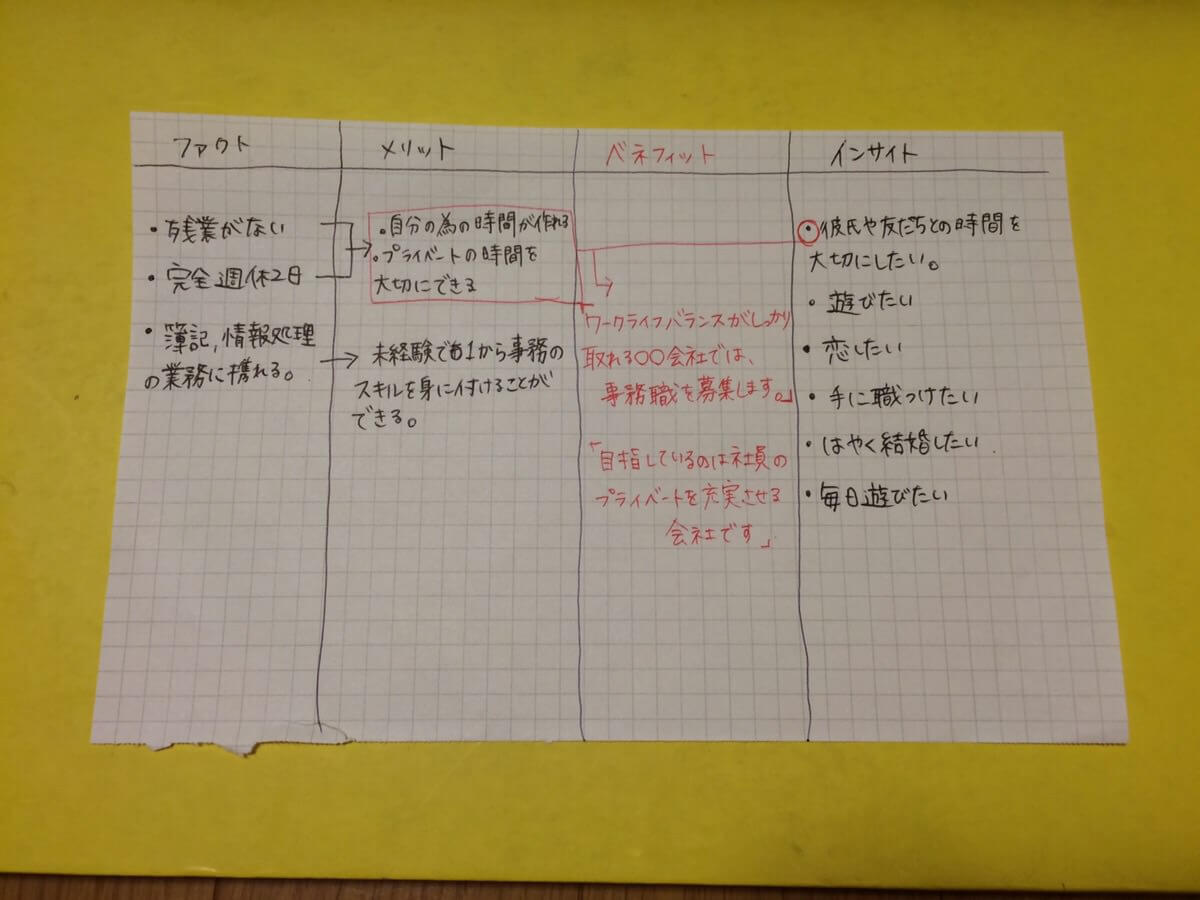 ファクト
メリット
ベネフィット
インサイト
・残業がない
・完全週休2日
・簿記,情報処理
の業務に携れる。
・自分の為の時間が作れる
・プライベートの時間を
大切にできる
未経験でも1から事務の
スキルを身に付けることが
できる。
「ワークライフバランスがしっかり
取れる〇〇会社では、
事務職を募集します。」
「目指しているのは社員の
プライベートを充実させる
会社です」
・彼氏や友だちとの時間を
大切にしたい。
・遊びたい
・恋したい
・手に職つけたい
・はやく結婚したい
・毎日遊びたい